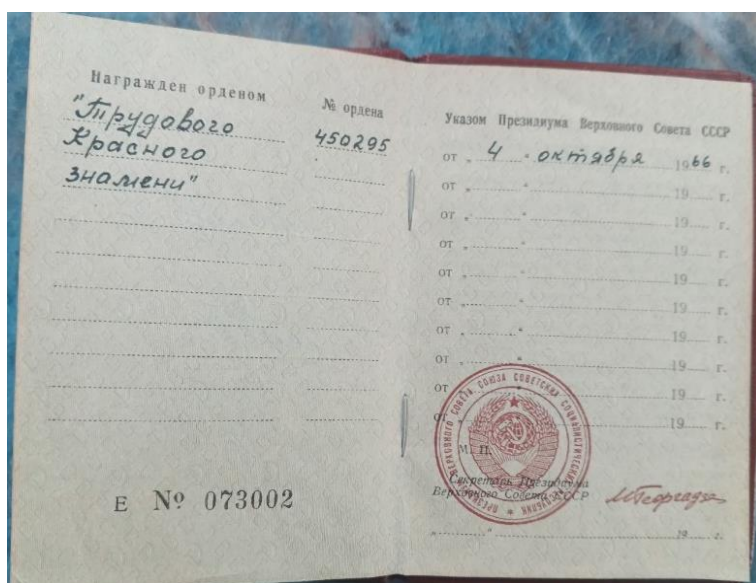 Награжден орденом
№ ордена
"Трудового
450295
Красного
знамени"
Е № 073002
Указом Президиума Верховного Совета СССР
от „ 4 “ октября 1966 г.
от „ “ 19 г.
от „ “ 19 г.
от „ “ 19 г.
от „ “ 19 г.
от „ “ 19 г.
от „ “ 19 г.
от „ “ 19 г.
от „ “ 19 г.
от „ “ 19 г.
М. П.
Секретарь Президиума
Верховного Совета СССР
МГеоргадзе
„ “ 19 г.
ПРЕЗИДИУМ ВЕРХОВНОГО СОВЕТА СОЮЗА СОВЕТСКИХ СОЦИАЛИСТИЧЕСКИХ РЕСПУБЛИК